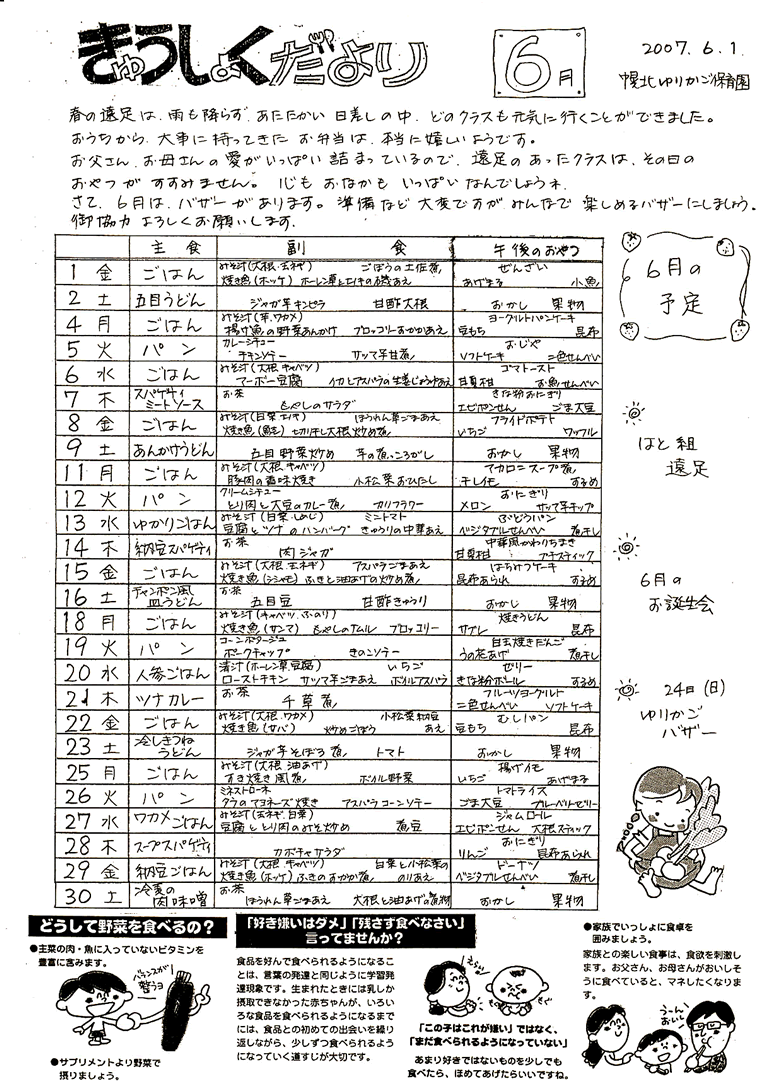 きゅうしょくだより
6月
2007.6.1
幌北ゆりかご保育園
春の遠足は、雨も降らず、あたたかい日差しの中、どのクラスも元気に行くことができました。
おうちから、大事に持ってきたお弁当は、本当に嬉しいようです。
お父さん、お母さんの愛がいっぱい詰まっているので、遠足のあったクラスは、その日の
おやつがすすみません。心もおなかもいっぱいなんでしょうネ.
さて、6月は、バザーがあります。準備など大変ですがみんなで楽しめるバザーにしましょう。
御協力よろしくお願いします.
主食 副食 午後のおやつ
1 金 ごはん みそ汁(大根・玉ネギ) ごぼうの土佐煮 ぜんざい
焼き魚(ホッケ) ホーレン草とエノキの磯あえ あげまる 小魚
2 土 五目うどん ジャガ芋キンピラ 甘酢大根 おかし 果物
4 月 ごはん みそ汁(芋.ワカメ) ヨーグルトパンケーキ
揚げ魚の野菜あんかけ ブロッコリーおかかあえ 豆もち 昆布
5 火 パン カレーシチュー おじや
チキンソテー サツマ芋甘煮 ソフトケーキ 二色せんべい
6 水 ごはん みそ汁(大根.キャベツ) ゴマトースト
マーボー豆腐 イカとアスパラの生姜じょうゆあえ 甘夏柑 お魚せんべい
7 木 スパゲティミートソース お茶 きな粉おにぎり
もやしのサラダ エビポンせん ごま大豆
8 金 ごはん みそ汁(白菜.エノキ) ほうれん草ごまあえ フライドポテト
焼き魚(鮭) 切り干し大根炒め煮 いちご ワッフル
9 土 あんかけうどん 五目野菜炒め 芋の煮っころがし おかし 果物
11 月 ごはん みそ汁(大根.キャベツ) マカロニスープ煮
豚肉の香味焼き 小松菜おひたし 干しイモ するめ
12 火 パン クリームシチュー おにぎり
とり肉と大豆のカレー煮 カリフラワー メロン サツマ芋チップ
13 水 ゆかりごはん みそ汁(白菜.しめじ) ミニトマト ぶどうパン
豆腐とツナのハンバーグ きゅうりの中華あえ ベジタブルせんべい 煮干し
14 木 納豆スパゲティ お茶 中華風かわりちまき
肉ジャガ 甘夏柑 プチスティック
15 金 ごはん みそ汁(大根.玉ネギ) アスパラごまあえ はちみつケーキ
焼き魚(シシャモ) ふきと油あげの炒め煮 昆布あられ するめ
16 土 チャンポン風皿うどん お茶
五目豆 甘酢きゅうり おかし 果物
18 月 ごはん みそ汁(キャベツ.ふのり) 焼きうどん
焼き魚(サンマ) もやしのナムル ブロッコリー サブレ 昆布
19 火 パン コーンポタージュ 白玉焼きだんご
ポークチャップ きのこソテー うの花あげ 煮干し
20 水 人参ごはん 清汁(ホーレン草.豆腐) いちご ゼリー
ローストチキン サツマ芋ごまあえ ボイルアスパラ きな粉ボール するめ
21 木 ツナカレー お茶 フルーツヨーグルト
千草煮 二色せんべい ソフトケーキ
22 金 ごはん みそ汁(大根.ワカメ) 小松菜納豆あえ むしパン
焼き魚(サバ) 炒めごぼう 豆もち 昆布
23 土 冷しきつねうどん ジャガ芋そぼろ煮 トマト おかし 果物
25 月 ごはん みそ汁(大根.油あげ) 揚げイモ
すき焼き風煮 ボイル野菜 いちご あげまる
26 火 パン ミネストローネ トマトライス
タラのマヨネーズ焼き アスパラコーンソテー ごま大豆 ブルーベリーゼリー
27 水 ワカメごはん みそ汁(玉ネギ.白菜) ジャムロール
豆腐ととり肉のみそ炒め 煮豆 エビポンせん 大根スティック
28 木 スープスパゲティ おにぎり
カボチャサラダ りんご 昆布あられ
29 金 納豆ごはん みそ汁(大根.キャベツ) 白菜と小松菜ののりあえ ドーナツ
焼き魚(ホッケ) ふきのおかか煮 ベジタブルせんべい 煮干し
30 土 冷麦の肉味噌 お茶
ほうれん草ごまあえ 大根と油あげの煮物 おかし 果物
6月の
予定
はと組
遠足
6月の
お誕生会
24日(日)
ゆりかご
バザー
どうして野菜を食べるの?
●主菜の肉・魚に入っていないビタミンを
豊富に含みます。
バランスが
整うヨ
●サプリメントより野菜で
摂りましょう。
「好き嫌いはダメ」「残さず食べなさい」
言ってませんか?
食品を好んで食べられるようになるこ
とは、言葉の発達と同じように学習発
達現象です。生まれたときには乳しか
摂取できなかった赤ちゃんが、いろい
ろな食品を食べられるようになるまで
には、食品との初めての出会いを繰り
返しながら、少しずつ食べられるよう
になっていく道すじが大切です。
えらい
「この子はこれが嫌い」ではなく、
「まだ食べられるようになっていない」
あまり好きではないものを少しでも
食べたら、ほめてあげたらいいですね。
●家族でいっしょに食卓を
囲みましょう。
家族との楽しい食事は、食欲を刺激し
ます。お父さん、お母さんがおいしそ
うに食べていると、マネしたくなりま
す。
うーん
おいしい